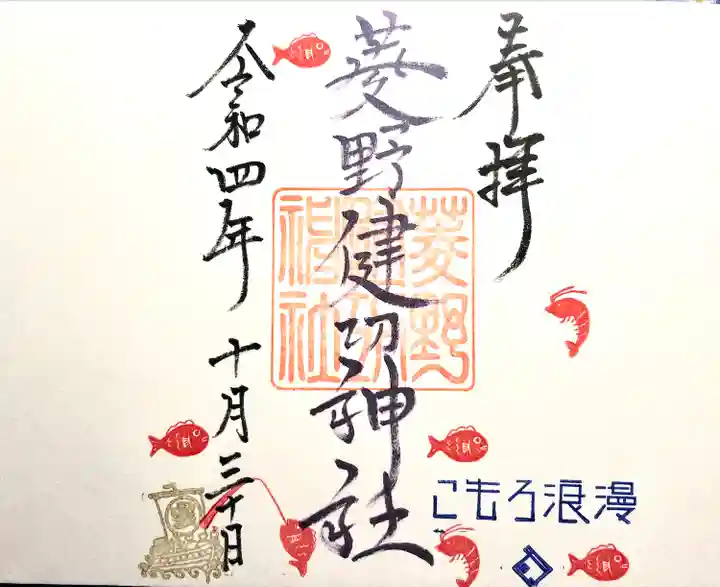 奉拝
菱野健功神社
菱野健功神社
令和四年 十月三十日
こもろ浪漫